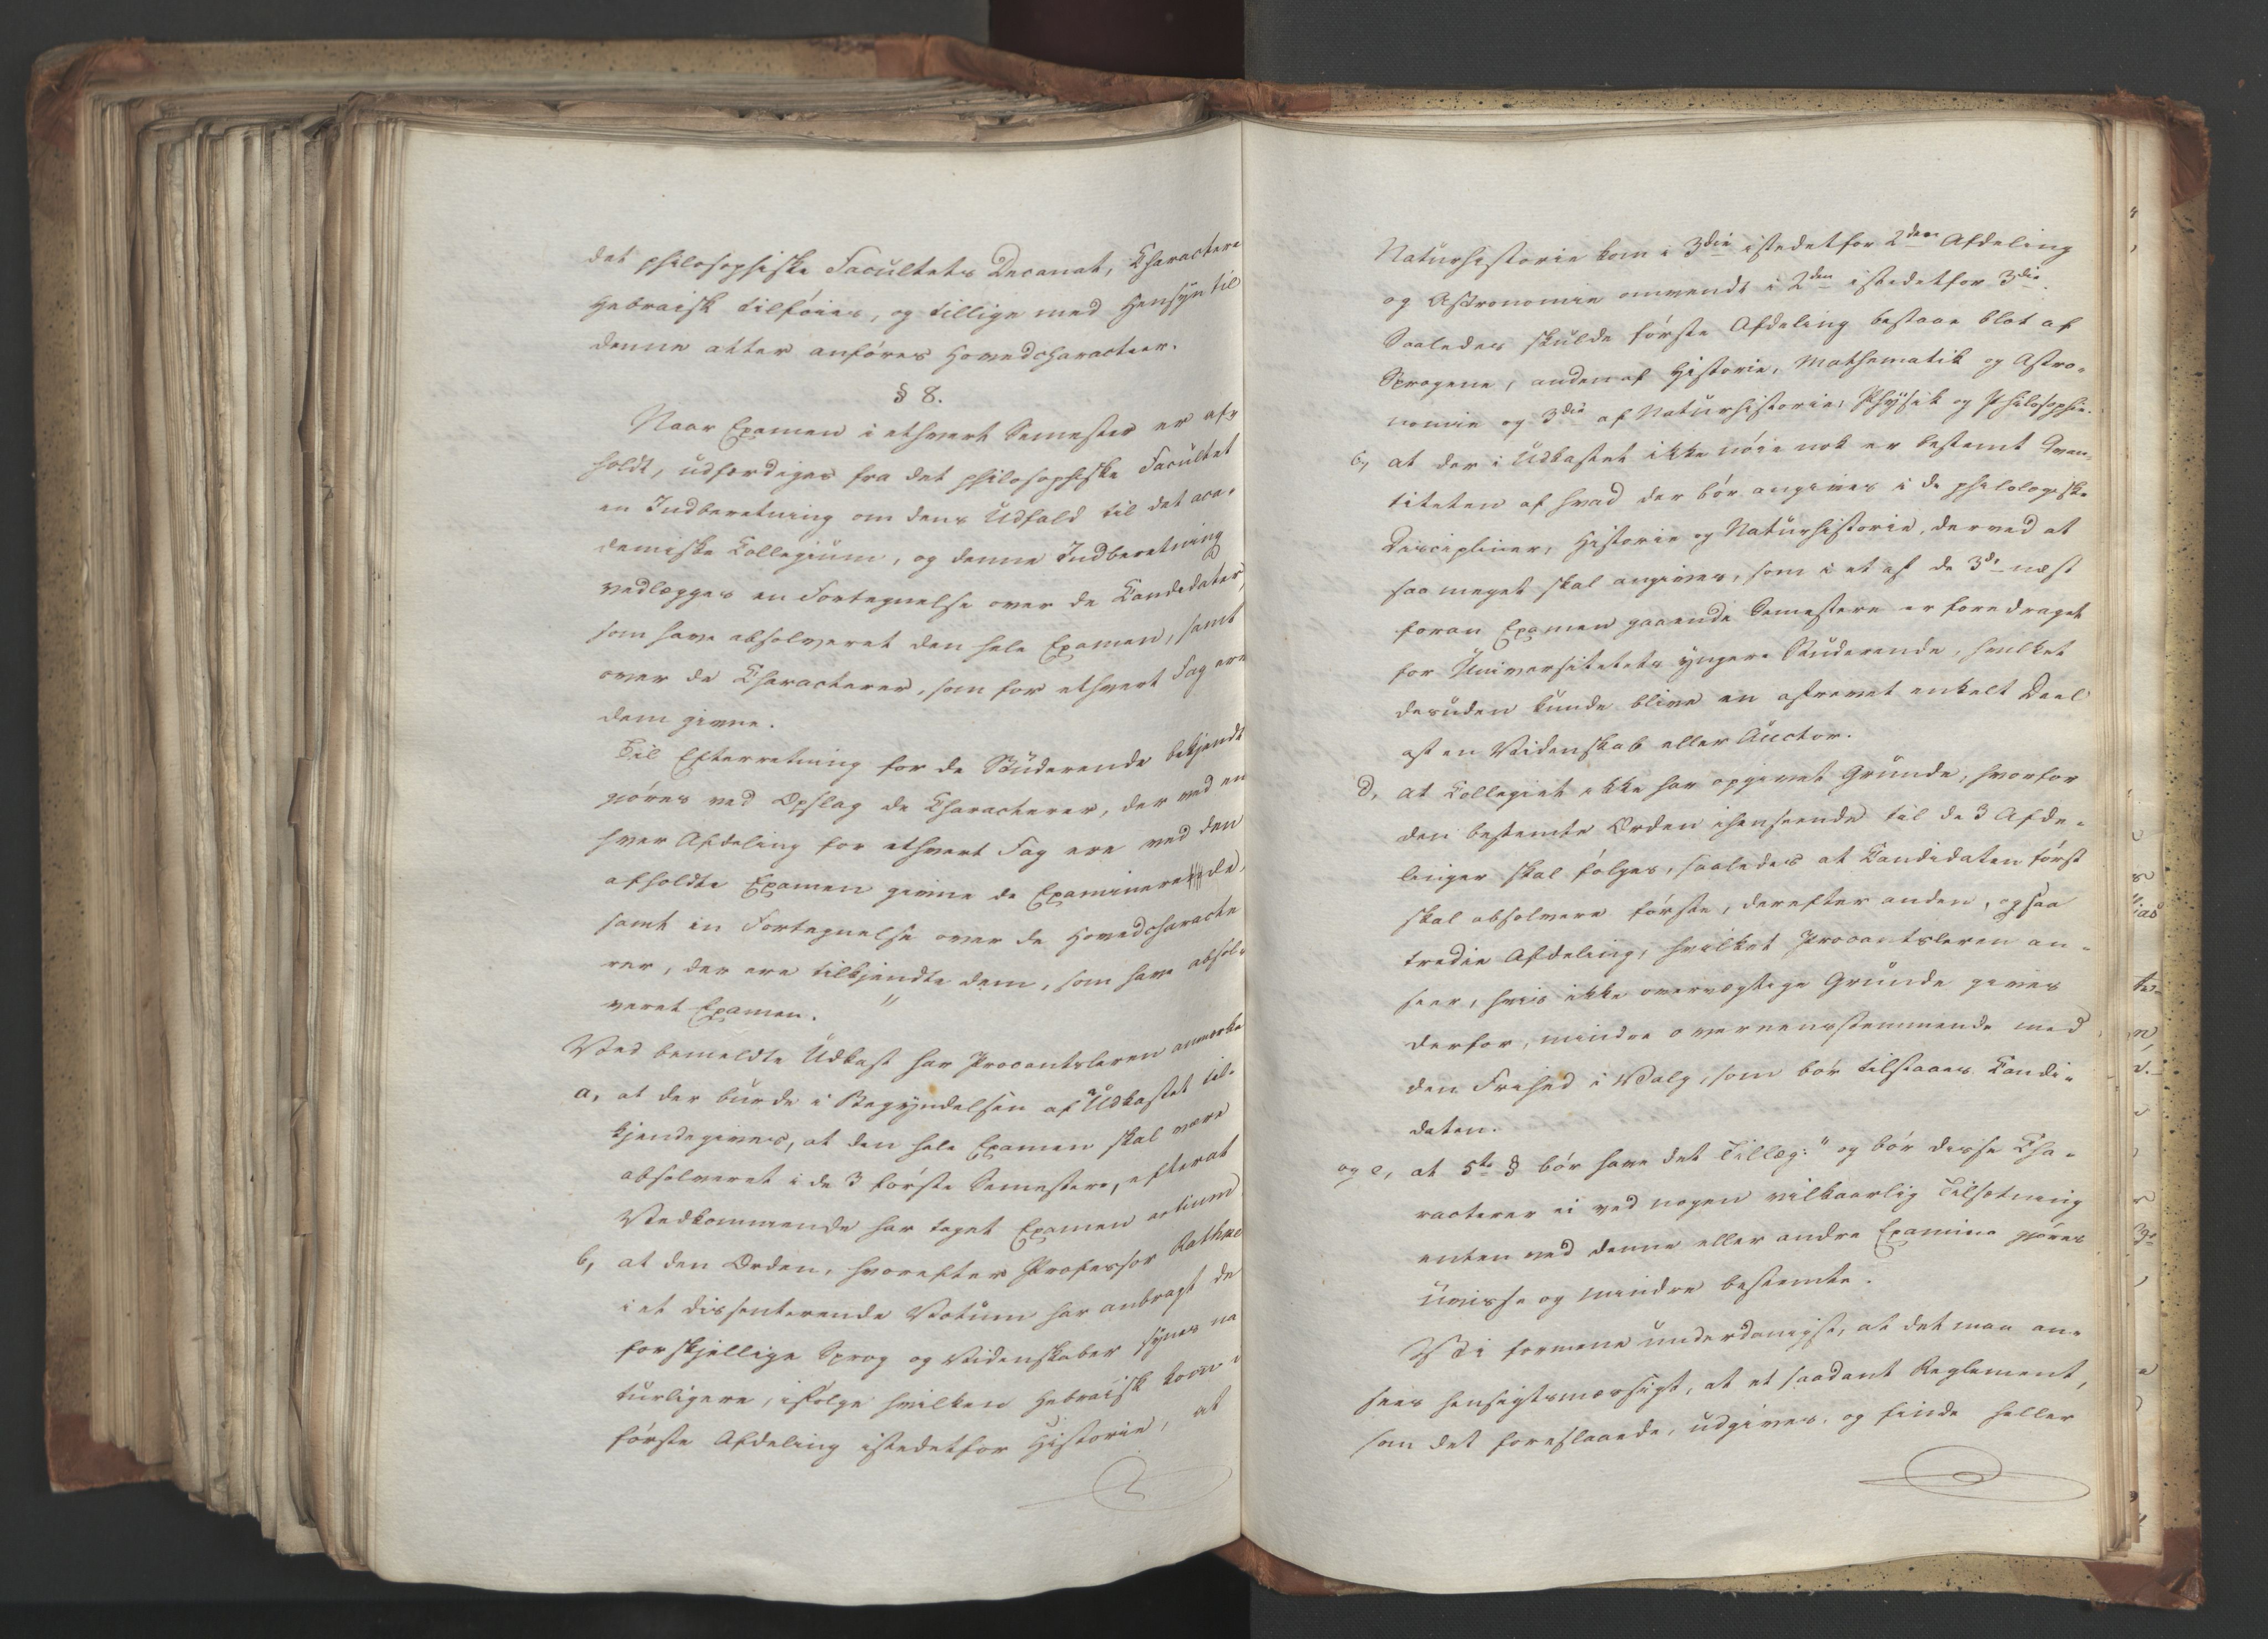 det philosophiske Facultets Decanat, Charactere
Hebraisk tilføies, og tillige med Hensyn til
denne atter anføres Hovedcharacteer.
§ 8.
Naar Examen i ethvert Semester er af-
holdt, udfærdiges fra det philosophiske Facultet
en Indberetning om dens Udfald til det aca-
demiske Collegium, og denne Indberetning
vedlægges en Fortegnelse over de Candidater,
som have absolveret den hele Examen, samt
over de Characterer, som for ethvert Fag ere
dem givne.
Til Efterretning for de Studerende bekjendt
gjøres ved Opslag de Characterer, der ved en
hver Afdeling for ethvert Fag ere ved den
afholdte Examen givne de Examinerede,
samt en Fortegnelse over de Hovedcharacte
rer, der ere tilkjendte dem, som have absol-
veret Examen. "
Ved bemeldte Udkast har Procantsleren anmærke
a, at der burde i Begyndelsen af Udkastet til-
kjendegives, at den hele Examen skal være
absolveret i de 3 første Semestere, efterat
Vedkommende har taget Examen artium
b, at den Orden, hvorefter Professor Rathke
i et dissenterende Votum har anbragt de
forskjellige Sprog og Videnskaber synes na
turligere, ifølge hvilken Hebraisk kom i
første Afdeling istedetfor Historie, at
Naturhistorie kom i 3die istedetfor 2den Afdeling
og Astronomie anvendt i 2den istedetfor 3die.
Saaledes skulde første Afdeling bestaae blot af
Sprogene, anden af Historie, Mathematik og Astro-
nomie og 3die af Naturhistorie, Physik og Philosophie.
c, at der i Udkastet ikke nøie nok er bestemt Qvan-
titeten af hvad der bør angives i de philologiske
Discipliner, Historie og Naturhistorie, derved at
saa meget skal angives, som i et af de 3de næst
foran Examen gaaende Semestere er foredraget
for Universitetets yngere Studerende, hvilket
desuden kunde blive en afrevet enkelt Deel
af en Videnskab eller Auctor.
d, at Collegiet ikke har opgivet Grunde, hvorfor
den bestemte Orden ihenseende til de 3 Afde-
linger skal følges, saaledes at Candidaten først
skal absolvere første, derefter anden, og saa
tredie Afdeling, hvilket Procantsleren an-
seer, hvis ikke overvægtige Grunde gives
derfor, mindre overeensstemmende med
den Frihed i Valg, som bør tilstaaes Candi-
daten.
og e, at 5te § bør have det Tillæg: " og bør disse Cha-
racterer ei ved nogen vilkaarlig Tilsætning
enten ved denne eller andre Examina gjøres
uvisse og mindre bestemte.
Vi formene underdanigst, at det maa an-
sees hensigtsmæssigt, at et saadant Reglement,
som det foreslaaede, udgives, og finde heller